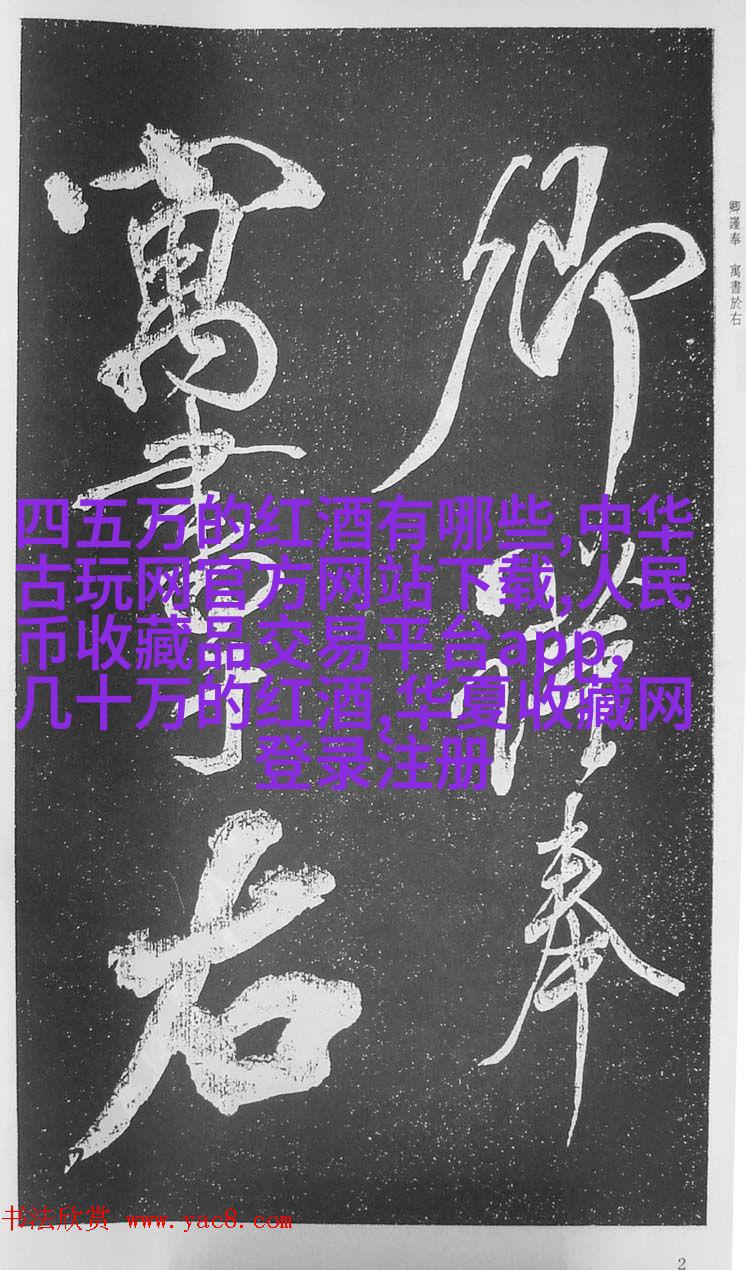 卿謹奉
寓書於右
卿謹奉 寓書於右
四五万的红酒有哪些,中华
古玩网官方网站下载,人民
币收藏品交易平台app,
几十万的红酒,华夏收藏网
登录注册
书法欣赏 www.yac8.com
2